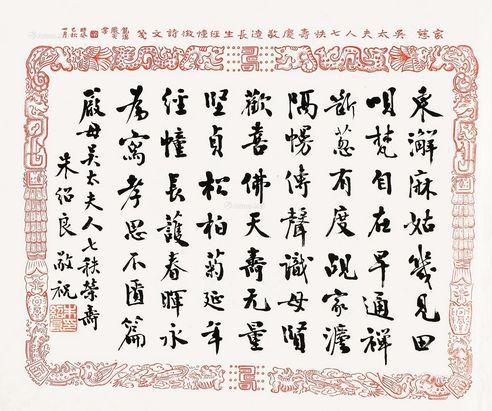 家慈 吳太夫人七帙壽慶敬造長生經幢徵詩文箋
東澥麻姑幾見田
唄梵自在早通禪
斷葱有度覘家灋
隔幌傳聲識母賢
歡喜佛天壽无量
堅貞松柏菊延年
經幢長護春暉永
為寫孝思不匱篇
嚴母吳太夫人七秩榮壽
朱紹良敬祝